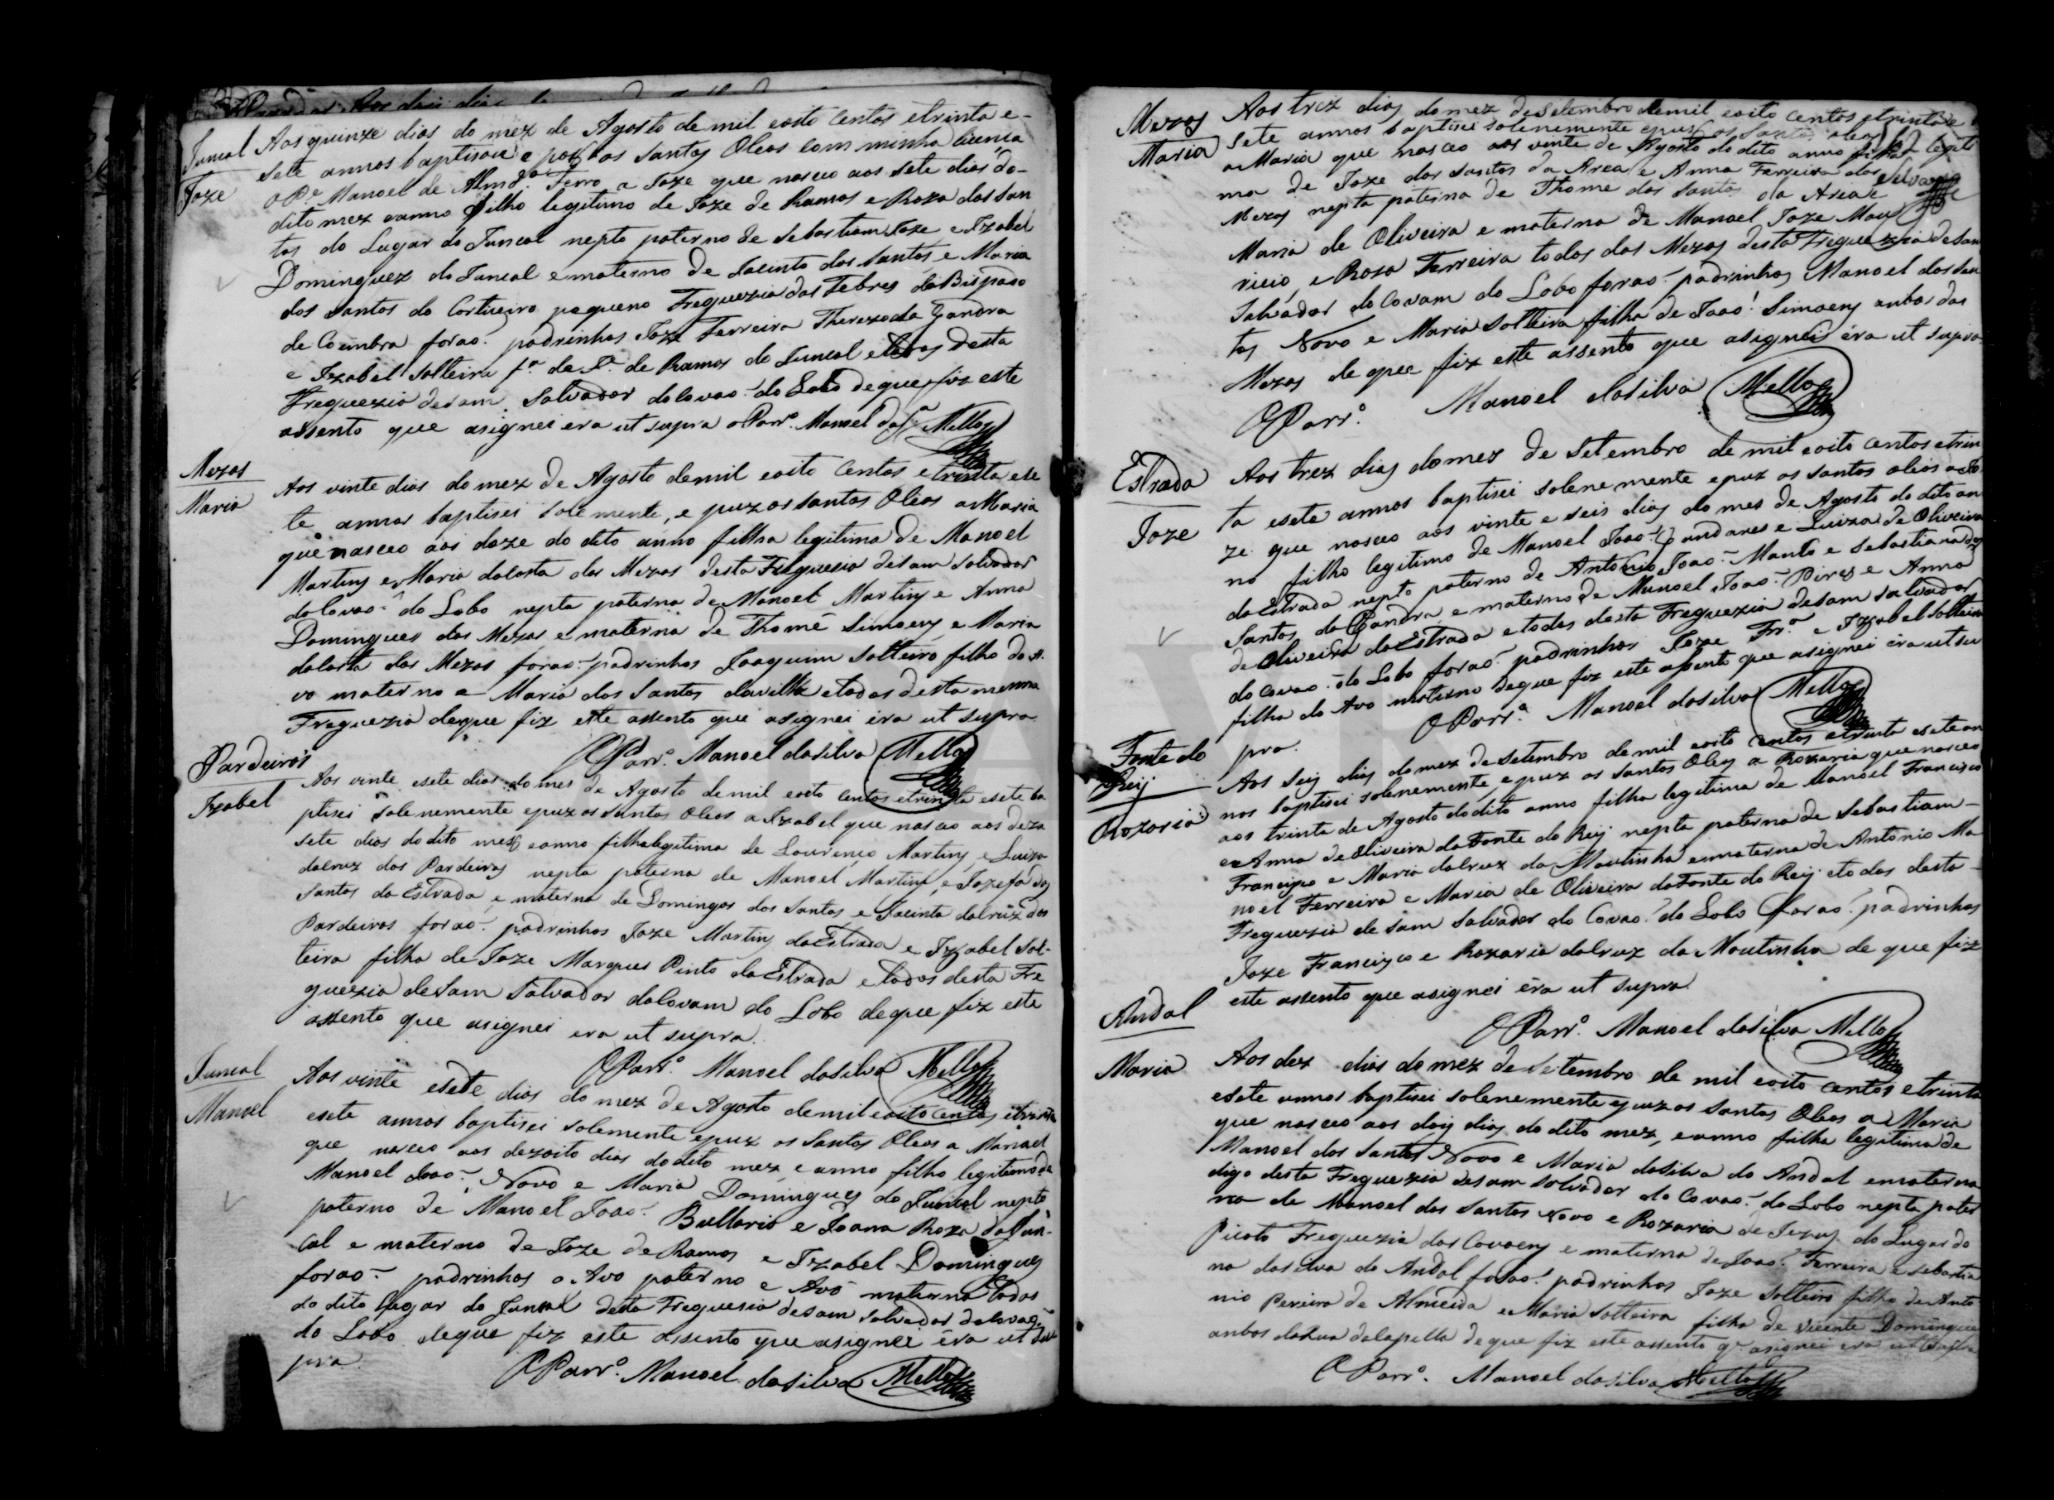 Juncal
Joze
Aos quinze dias do mez de Agosto de mil eoito centos etrinta e-
sete annos baptisou e poz os Santos Oleos com minha licenca
o P.e Manoel de Almd.a Ferro a Joze que nasceo aos sete dias do-
dito mez eanno filho legitimo de Joze de Ramos e Roza dos San
tos do Lugar do Juncal nepto paterno de Sebastiam Joze e Izabel
Domingues do Juncal ematerno de Jacinto dos Santos e Maria
dos Santos do Cortiçeiro pequeno Freguezia das Febres do Bispado
de Coimbra forao padrinhos Joze Ferreira Thereza da Gandra
e Izabel Solteira f.a de J.e de Ramos do Juncal etodos desta
Freguezia desam Salvador docovao do Lobo deque fiz este
assento que asignei era ut supra o Parr.o Manoel da S.a Mello
Mezas
Maria
Aos vinte dias do mez de Agosto demil eoito centos etrinta ese
te annos baptisei solemente, e puz os santos Oleos a Maria
que nasceo aos doze do dito anno filha legitima de Manoel
Martins e Maria dacosta das Mezas desta Freguezia desam Salvador
docovao do Lobo nepta paterna de Manoel Martins e Anna
Domingues das Mezas e materna de Thomé Simoens e Maria
dacosta das Mezas forao padrinhos Joaquim Solteiro filho do A
vo materno e Maria dos Santos davilla etodos desta mesma
Freguezia deque fiz este assento que asignei era ut supra
O Parr.o Manoel dasilva Mello
Pardeiros
Izabel
Aos vinte esete dias do mes de Agosto demil eoito centos etrinta esete ba
ptisei solenemente epuz os Santos Oleos a Izabel que nasceo aos deza
sete dias do dito mez eanno filha legitima de Lourenço Martins e Luiza
dacruz dos Pardeiros nepta paterna de Manoel Martins e Jozefa dos
Santos da Estrada e materna de Domingos dos Santos e Jacinta dacruz dos
Pardeiros forao padrinhos Joze Martins da Estrada e Izabel Sol-
teira filha de Joze Marques Pinto da Estrada e todos desta Fre
guezia de Sam Salvador docovam do Lobo deque fiz este
assento que asignei era ut supra.
O Parr.o Manoel dasilva Mello
Juncal
Manoel
Aos vinte esete dias do mez de Agosto demil eoito centos etrinta
esete annos baptisei solemente epuz os Santos Oleos a Manoel
que nasceo aos dezoito dias dodito mez e anno filho legitimo de
Manoel Joao Novo e Maria Domingues do Juncal nepto
paterno de Manoel Joao Bultario e Joana Roza do Jun-
cal e materno de Joze de Ramos e Izabel Domingues
forao padrinhos o Avo paterno e Avó materna todos
do dito lugar do Juncal desta Freguesia desam Salvador docovao
do Lobo deque fiz este asento que asignei éra ut su
pra.
O Parr.o Manoel dasilva Mello
Mezas
Maria
Aos trez dias do mez deSetembro demil eoito centos etrinta e
sete annos baptisei solenemente epuz os Santos oleos
a Maria que nasceo aos vinte de Agosto do dito anno filha legiti
ma de Joze dos Santos da Area e Anna Ferreira das
Mezas nepta paterna de Thome dos Santos da Area e
Maria de Oliveira e materna de Manoel Joze Mau
ricio, e Rosa Ferreira todos das Mezas desta Freguezia desam
Salvador do Covam do Lobo forao padrinhos Manoel dos San
tos Novo e Maria Solteira filha de Joao Simoens anbos das
Mezas de que fiz este assento que asignei éra ut supra
O Parr.o Manoel dasilva Mello
Estrada
Joze
Aos trez dias domez de Setembro de mil eoito centos etrin
ta esete annos baptisei solenemente epuz os santos oleos a Jo
ze que nasceo aos vinte e seis dias do mes de Agosto do dito an
no filho legitimo de Manoel Joao Gandares e Luiza de Oliveira
da Estrada nepto paterno de Antonio Joao Manto e Sebastiana dos
Santos da Gandra e materno de Manoel Joao Pires e Anna
de Oliveira da Estrada e todos desta Freguezia desam salvador
do Covao do Lobo forao padrinhos Joze Fr.a e Izabel Solteira
filha do Avo materno deque fiz este asento que asignei era ut su
pra.
O Parr.o Manoel dasilva Mello
Fonte do
Reij
Rozaria
Aos seis dias domez de Setembro demil eoito centos etrinta esete an
nos baptisei solenemente, epuz os santos Oleos a Rozaria que nasceo
aos trinta de Agosto dodito anno filha legitima de Manoel Francisco
e Anna de Oliveira da Fonte do Reij nepta paterna de Sebastiam-
Francisco e Maria dacruz da Moutinha ematerna de Antonio Ma
noel Ferreira e Maria de Oliveira daFonte do Reij etodos desta-
Freguezia de sam salvador do Covao do Lobo forao padrinhos
Joze Francisco e Rozaria dacruz da Moutinha de que fiz
este assento que asignei éra ut supra
O Parr.o Manoel dasilva Mello
Andal
Maria
Aos dez dias do mez de Setembro de mil eoito centos etrinta
esete annos baptisei solenemente epuz os Santos Oleos a Maria
que nasceo aos dois dias do dito mez, eanno filha legitima de
Manoel dos Santos Novo e Maria dasilva do Andal ematerna
digo desta Freguezia desam Salvador do Covao do Lobo nepta pater
na de Manoel dos Santos Novo e Rozaria de Jezus do Lugar do
Picoto Freguezia dos Covoens e materna de Joao Ferreira e Sebastia
na dasilva do Andal forao padrinhos Joze Solteiro filho de Anto
nio Pereira de Almeida e Maria Solteira filha de Vicente Domingues
anbos da Rua dacapella de que fiz este assento q asignei era ut supra
O Parr.o Manoel dasilva Mello